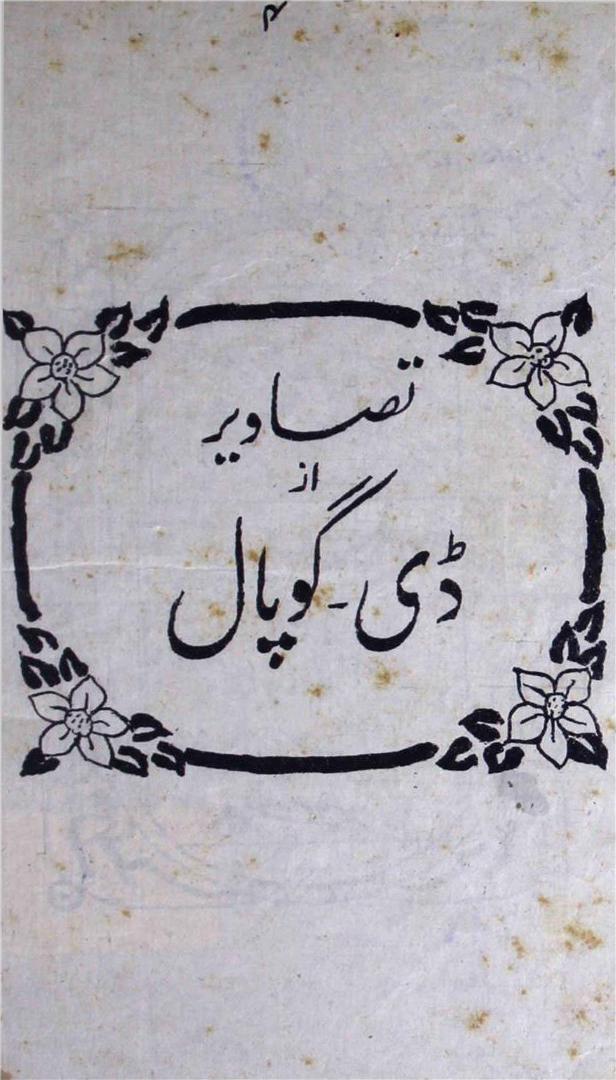 ۴
تصاویر
از
ڈی۔ گوپال